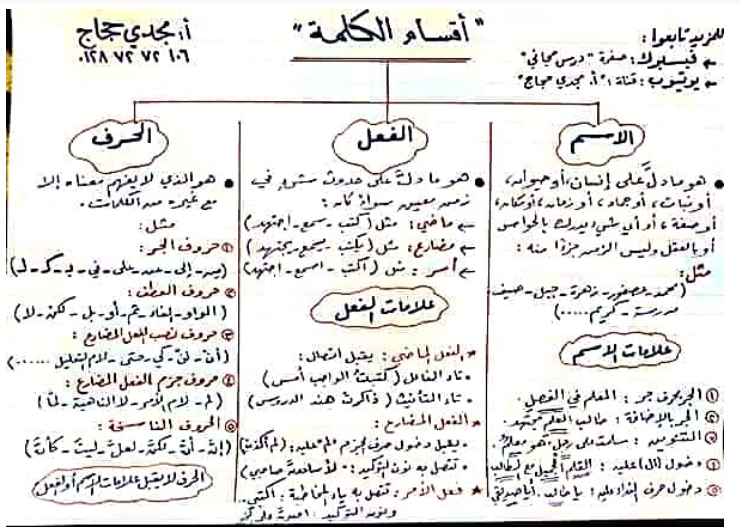 للمزيد تابعوا:
← فيسبوك: صفحة "درس مجاني"
← يوتيوب: قناة "أ. مجدي حجاج"
"أقسام الكلمة"
أ: مجدي حجاج
٠١٢٨ ٧٢ ٧٢ ١٠٦
الاسم
• هو ما دلَّ على إنسان، أو حيوان،
أو نبات، أو جماد، أو زمان، أو مكان،
أو صفة، أو أي شيء يدرك بالحواس
أو بالعقل وليس الزمن جزءًا منه:
مثل:
(محمد - عصفور - زهرة - جبل - صيف
مدرسة - كريم .....)
علامات الاسم
① الجر بحرف جر: المعلم في الفصل.
② الجر بالإضافة: طالب العلم مجتهد.
③ التنوين: سلمت على رجل - هو معلمٌ.
④ دخول (ال) عليه: القلم الجميل مع الطالب
⑤ دخول حرف النداء عليه: يا خالد. أيا صديقي
الفعل
• هو ما دلَّ على حدوث شيء في
زمن معين سواء كان:
← ماضي: مثل (كتب - سمع - اجتهد)
← مضارع: مثل (يكتب - يسمع - يجتهد)
← أمر: مثل (اكتب - اسمع - اجتهد)
علامات الفعل
* الفعل الماضي: يقبل اتصال:
• تاء الفاعل (كتبتُ الواجب أمس)
• تاء التأنيث (ذاكرتْ هند الدروس)
* الفعل المضارع:
• يقبل دخول حرف الجزم "لم" عليه: (لم أكذب)
• تتصل به نون التوكيد: "لأساعدنَّ صاحبي)
* فعل الأمر: تتصل به ياء المخاطبة: اكتبي.
ونون التوكيد:
الحرف
• هو الذي لا يفهم معناه إلا
مع غيره من الكلمات.
مثل:
① حروف الجر:
(من - إلى - عن - على - في - بـ - كـ - لـ)
② حروف العطف:
(الواو - الفاء - ثم - أو - بل - لكن - لا)
③ حروف نصب الفعل المضارع:
(أنْ - لنْ - كي - حتى - لام التعليل .....)
④ حروف جزم الفعل المضارع:
(لم - لام الأمر - لا الناهية - لمّا)
⑤ الحروف الناسخة:
(إنَّ - أنَّ - لكنَّ - لعلَّ - ليتَ - كأنَّ)
الحرف لا يقبل علامات الاسم أو الفعل